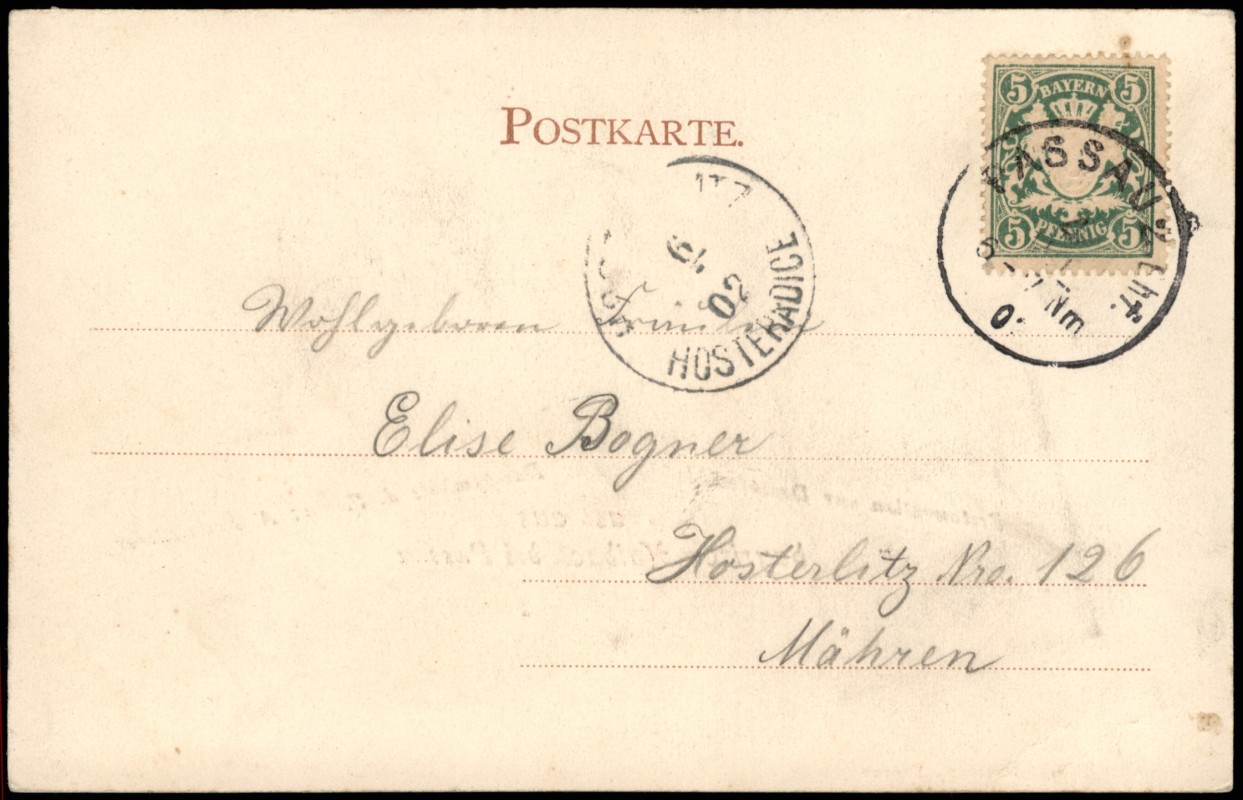 POSTKARTE.
5 BAYERN 5
5 PFENNIG 5
PASSAU
Nm
02
HOSTERADICE
Wohlgeboren Fräulein
Elise Bogner
Hosterlitz Nro. 126
Mähren